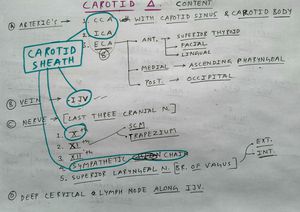 CAROTID Δ CONTENT
Ⓐ ARTERIE'S
1. CCA WITH CAROTID SINUS & CAROTID BODY
2. ICA
3. ECA
8
ANT. SUPERIOR THYROID
FACIAL
LINGUAL
MEDIAL → ASCENDING PHARYNGEAL
POST. → OCCIPITAL
CAROTID
SHEATH
Ⓑ VEIN → IJV
Ⓒ NERVE → [LAST THREE CRANIAL N.]
1. Xth
2. XIth
SCM
TRAPEZIUM
3. XIIth
4. SYMPATHETIC CHAIN
5. SUPERIOR LARYNGEAL N. [BR. OF VAGUS]
EXT.
INT.
Ⓓ DEEP CERVICAL LYMPH NODE ALONG IJV.